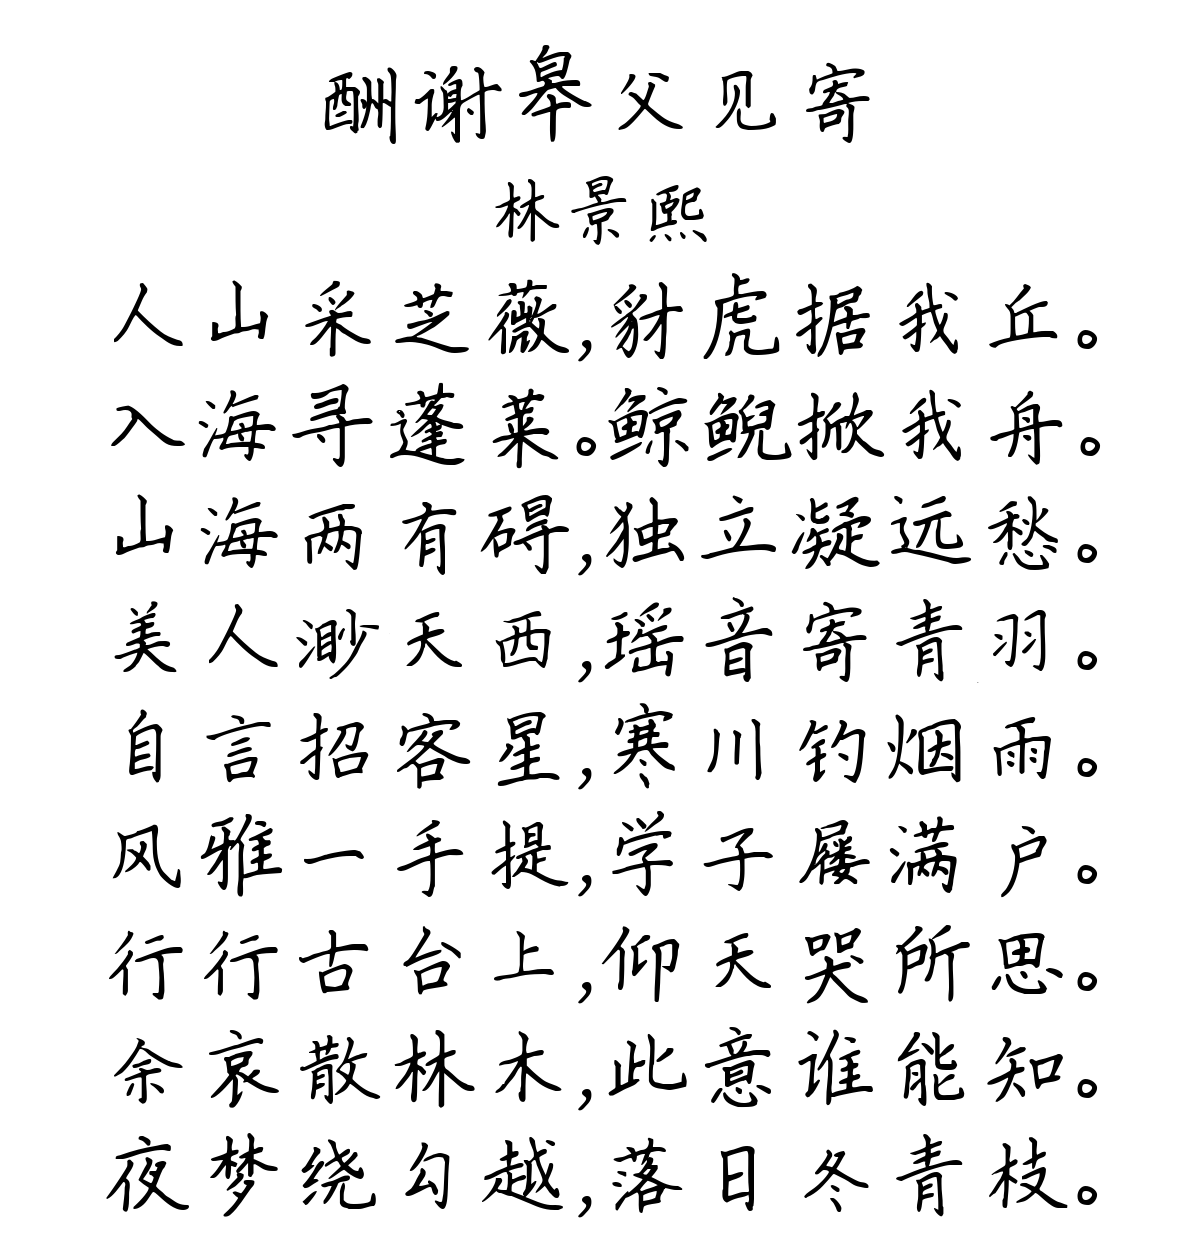 酬谢皋父见寄
林景熙
人山采芝薇,豺虎据我丘。
入海寻蓬莱。鲸鲵掀我舟。
山海两有碍,独立凝远愁。
美人渺天西,瑶音寄青羽。
自言招客星,寒川钓烟雨。
风雅一手提,学子屦满户。
行行古台上,仰天哭所思。
余哀散林木,此意谁能知。
夜梦绕勾越,落日冬青枝。